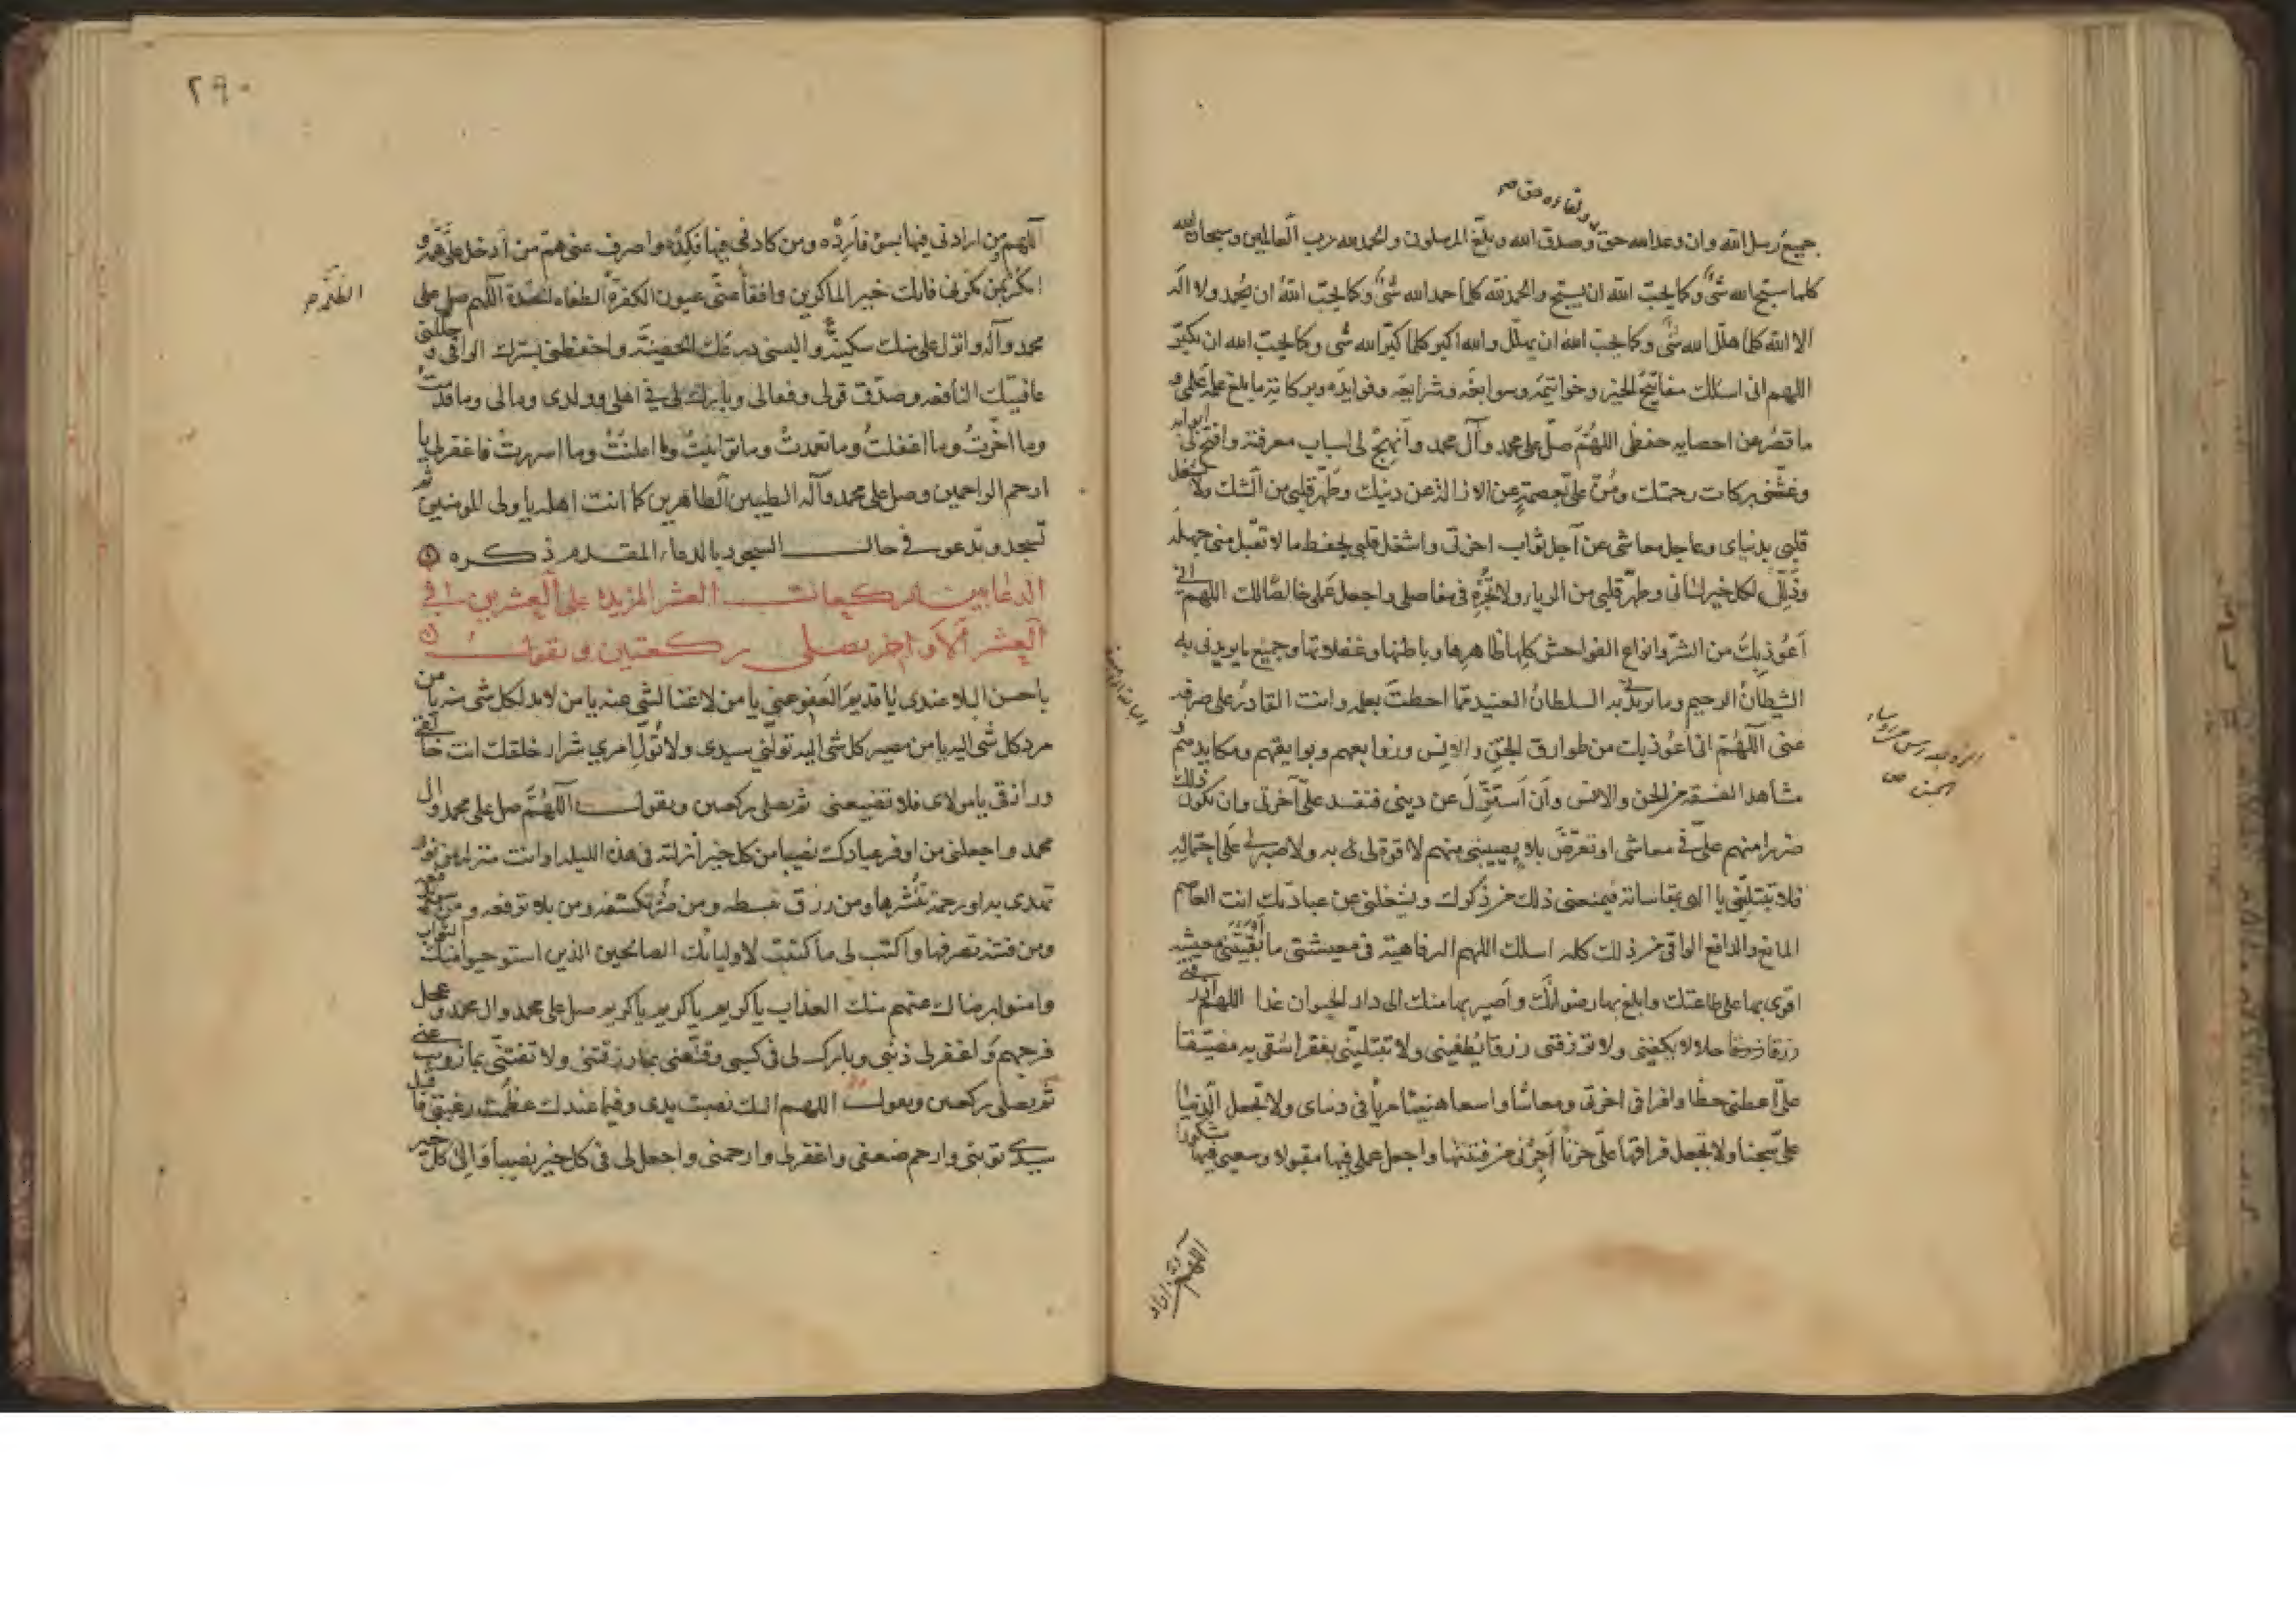 جميع رسل الله وان وعد الله حق وصدق الله وبلغ المرسلون والحمد لله رب العالمين وسبحان الله
كلما سبح الله شئ وكما يحب الله ان يسبح والحمد لله كلما حمد الله شئ وكما يحب الله ان يحمد ولا اله
الا الله كلما هلل الله شئ وكما يحب الله ان يهلل والله اكبر كلما كبر الله شئ وكما يحب الله ان يكبر
اللهم انى اسئلك مفاتيح الخير وخواتيمه وسوابغه وشرايعه وفوايده وبركاته ما بلغ علمه علمى و
ما قصر عن احصايه حفظى اللهم صل على محمد وآل محمد وانهج لى اسباب معرفته وافتح لى ابوابه
وغشنى بركات رحمتك ومن على بعصمة عن الازالة عن دينك وطهر قلبى من الشك ولا تشغل
قلبى بدنياى وعاجل معاشى عن آجل ثواب اخرتى واشغل قلبى بحفظ ما لا تقبل منى جهله
وذلل لكل خير لسانى وطهر قلبى من الرياء ولا تجره فى مفاصلى واجعل عملى خالصا لك اللهم انى
اعوذ بك من الشر وانواع الفواحش كلها ظاهرها وباطنها وغفلاتها وجميع ما يريدنى به
الشيطان الرجيم وما يريدنى به السلطان العنيد مما احطت بعلمه وانت القادر على صرفه
عنى اللهم انى اعوذ بك من طوارق الجن والانس وزوابعهم وبوايقهم ومكايدهم و
مشاهد الفسقة من الجن والانس وان استزل عن دينى فتفسد على آخرتى وان يكون ذلك
ضررا منهم على فى معاشى او تعرض بلاء يصيبنى منهم لا قوة لى به ولا صبر لى على احتماله
فلا تبتلينى يا الهى بمقاساته فيمنعنى ذلك من ذكرك ويشغلنى عن عبادتك انت العاصم
المانع والدافع الواقى من ذلك كله اسئلك اللهم الرفاهية فى معيشتى ما ابقيتنى معيشة
اقوى بها على طاعتك وابلغ بها رضوانك واصير بها منك الى دار الحيوان غدا اللهم ارزقنى
رزقا حلالا يكفينى ولا ترزقنى رزقا يطغينى ولا تبتلينى بفقر اشقى به مضيقا
على اعطنى حظا وافرا فى اخرتى ومعاشا واسعا هنيئا مريا فى دنياى ولا تجعل الدنيا
على سجنا ولا تجعل فراقها على حزنا اجرنى من فتنتها واجعل عملى فيها مقبولا وسعيى فيها مشكورا
٢٩٠
اللهم من ارادنى فيها بسوء فارده ومن كادنى فيها فكده واصرف عنى هم من ادخل على همه و
امكر بمن مكر بى فانك خير الماكرين وافقأ عنى عيون الكفرة الطغاه الحسدة اللهم صل على
محمد وآله وانزل على منك سكينة والبسنى درعك الحصينة واحفظنى بسترك الواقى وجللنى
عافيتك النافعه وصدق قولى وفعالى وبارك لى فى اهلى وولدى ومالى وما قدمت
وما اخرت وما اغفلت وما تعمدت وما توانيت وما اعلنت وما اسررت فاغفر لى يا
ارحم الراحمين وصل على محمد وآله الطيبين الطاهرين كما انت اهله يا ولى المومنين ثم
تسجد وتدعو فى حال السجود بالدعاء المقدم ذكره
الدعا بين الركعات العشر المزيدة على العشرين فى
العشر الاواخر يصلى ركعتين ويقول
يا حسن البلاء عندى يا قديم العفو عنى يا من لا غنا لشئ عنه يا من لابد لكل شى منه يا من
مرد كل شئ اليه يا من مصير كل شى اليه تولنى سيدى ولا تول امرى شرار خلقك انت خالقى
ورازقى يا مولاى فلا تضيعنى ثم يصلى ركعتين ويقول اللهم صل على محمد وال
محمد واجعلنى من اوفر عبادك نصيبا من كل خير انزلته فى هذه الليلة او انت منزله من نور
تهدى به او رحمة تنشرها ومن رزق تبسطه ومن ضر تكشفه ومن بلاء ترفعه ومن سوء تدفعه
ومن فتنة تصرفها واكتب لى ما كتبت لاوليائك الصالحين الذين استوجبوا منك الثواب
وامنوا برضاك عنهم منك العذاب يا كريم يا كريم يا كريم صل على محمد وال محمد وعجل
فرجهم واغفر لى ذنبى وبارك لى فى كسبى وقنعنى بما رزقتنى ولا تفتنى بما زويت عنى
ثم يصلى ركعتين ويقول اللهم اليك نصبت يدى وفيما عندك عظمت رغبتى فاقبل
سيدى توبتى وارحم ضعفى واغفر لى وارحمنى واجعل لى فى كل خير نصيبا والى كل خير